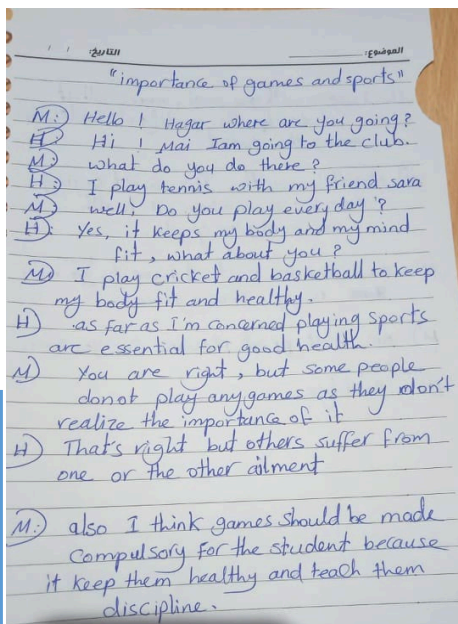 التاريخ: / /
الموضوع:
"importance of games and sports"
M:) Hello ! Hagar where are you going?
H:) Hi ! Mai Iam going to the club.
M:) what do you do there ?
H:) I play tennis with my friend sara
M) well, Do you play every day ?
H): Yes, it keeps my body and my mind
fit, what about you ?
M) I play cricket and basketball to keep
my body fit and healthy.
H) as far as I'm concerned playing sports
are essential for good health.
M) You are right, but some people
donot play any games as they don't
realize the importance of it
H) That's right but others suffer from
one or the other ailment
M:) also I think games should be made
Compulsory for the student because
it keep them healthy and teach them
discipline.